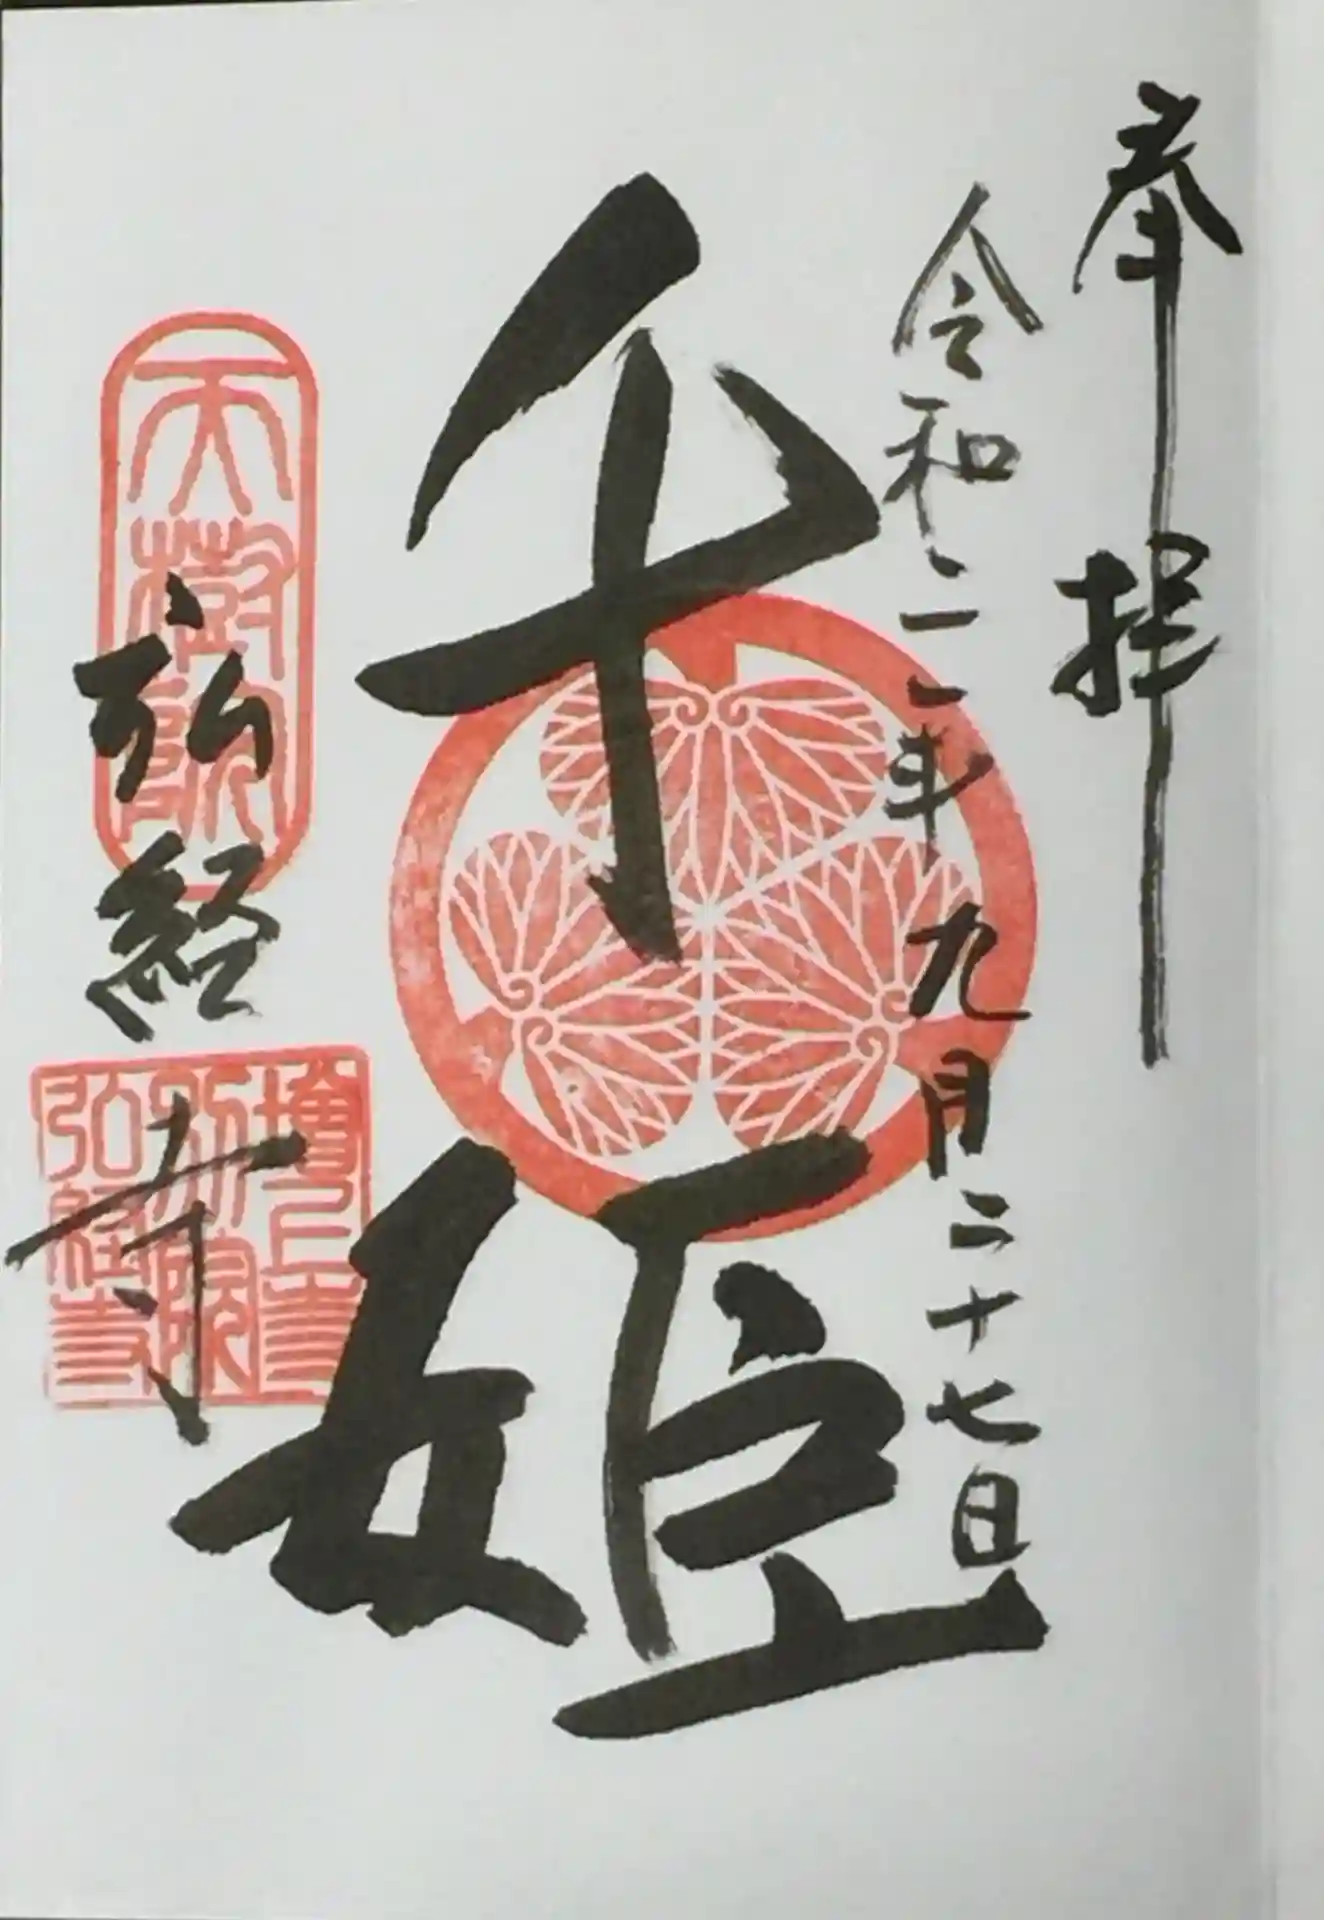 奉拝
令和二年九月二十七日
千姫
弘経寺
天樹院
増上寺
別院
弘経寺